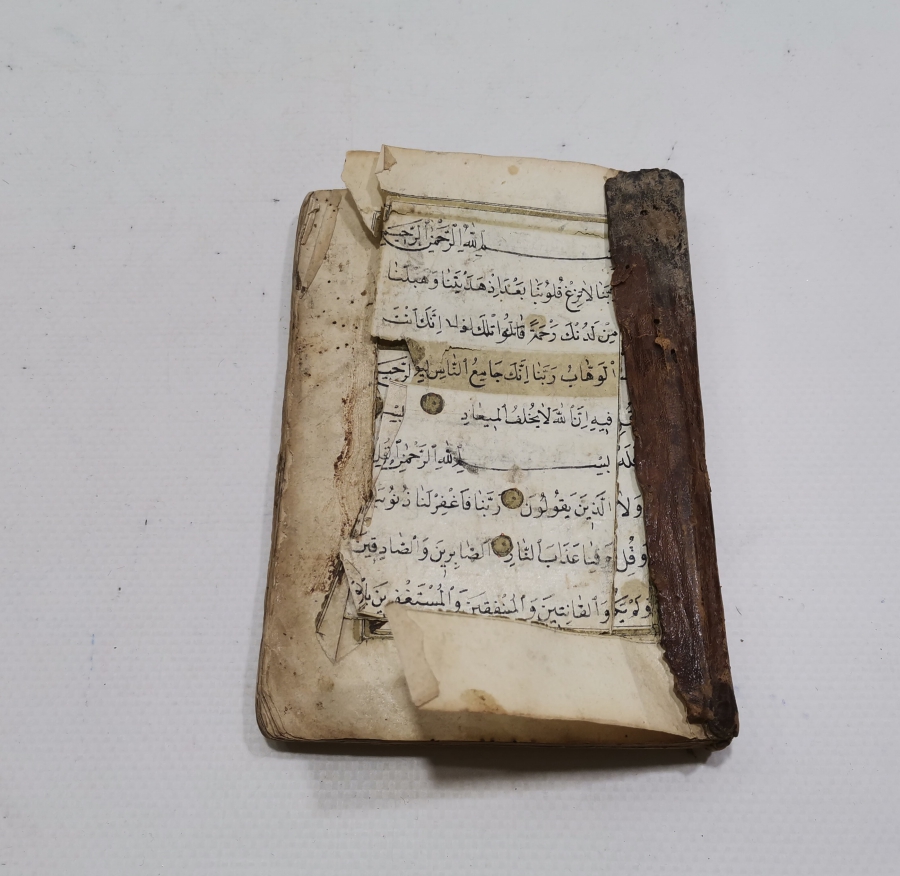 اللّٰهِ الرَّحْمٰنِ الرَّحِيمِ
رَبَّنَا لَا تُزِغْ قُلُوبَنَا بَعْدَ اِذْ هَدَيْتَنَا وَهَبْ لَنَا
مِنْ لَدُنْكَ رَحْمَةً اِنَّكَ اَنْتَ
الْوَهَّابُ رَبَّنَا اِنَّكَ جَامِعُ النَّاسِ الرَّحِيمِ
فِيهِ اِنَّ اللّٰهَ لَا يُخْلِفُ الْمِيعَادَ
بِسْمِ اللّٰهِ الرَّحْمٰنِ
وَلَا الَّذِينَ يَقُولُونَ رَبَّنَا فَاغْفِرْ لَنَا ذُنُوبَنَا
وَقُلْ وَقِنَا عَذَابَ النَّارِ الصَّابِرِينَ وَالصَّادِقِينَ
وَالْقَانِتِينَ وَالْمُنْفِقِينَ وَالْمُسْتَغْفِرِينَ